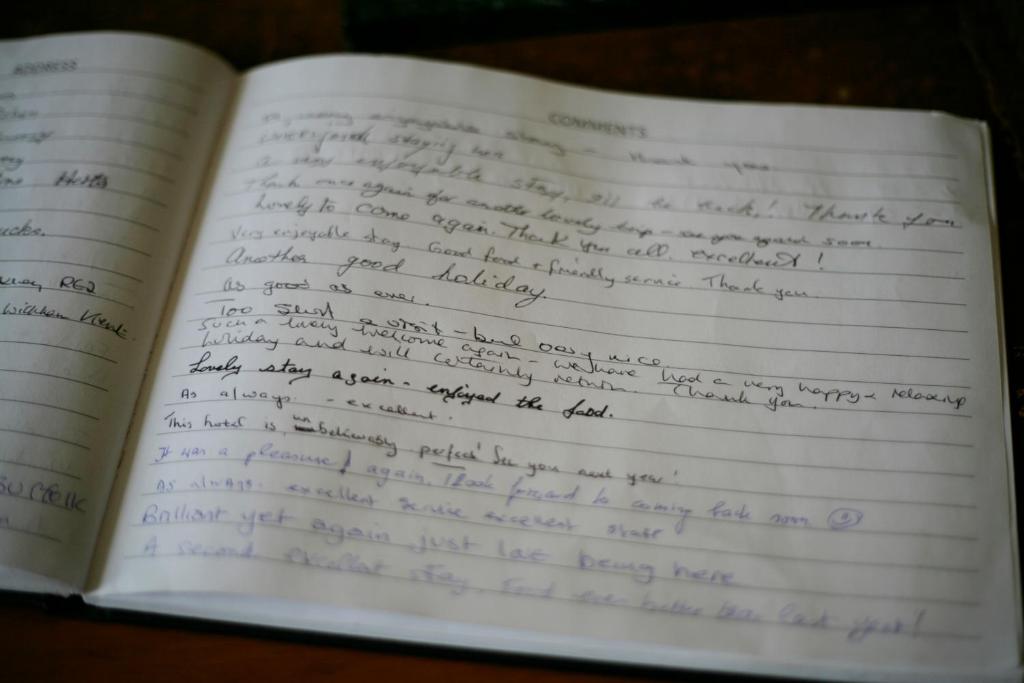 ADDRESS
Herts
ucks.
RG2
Witcham Kent.
SUFFOLK
COMMENTS
enjoyable stay - thank you
staying here
a very enjoyable stay, 'ill be back! Thank you
Thank once again for another lovely trip - see you again soon.
Lovely to come again. Thank you all. excellent!
Very enjoyable stay. Good food + friendly service. Thank you.
Another good holiday.
As good as ever.
Too short a visit - but very nice
Such a lovely welcome again - we have had a very happy & relaxing
holiday and will certainly return. Thank you.
Lovely stay again - enjoyed the food.
As always - excellent.
This hotel is unbelievably perfect! See you next year!
It was a pleasure again, I look forward to coming back soon
As always excellent service excellent
Brilliant yet again just love being here
A second excellent stay, food even better than last year!